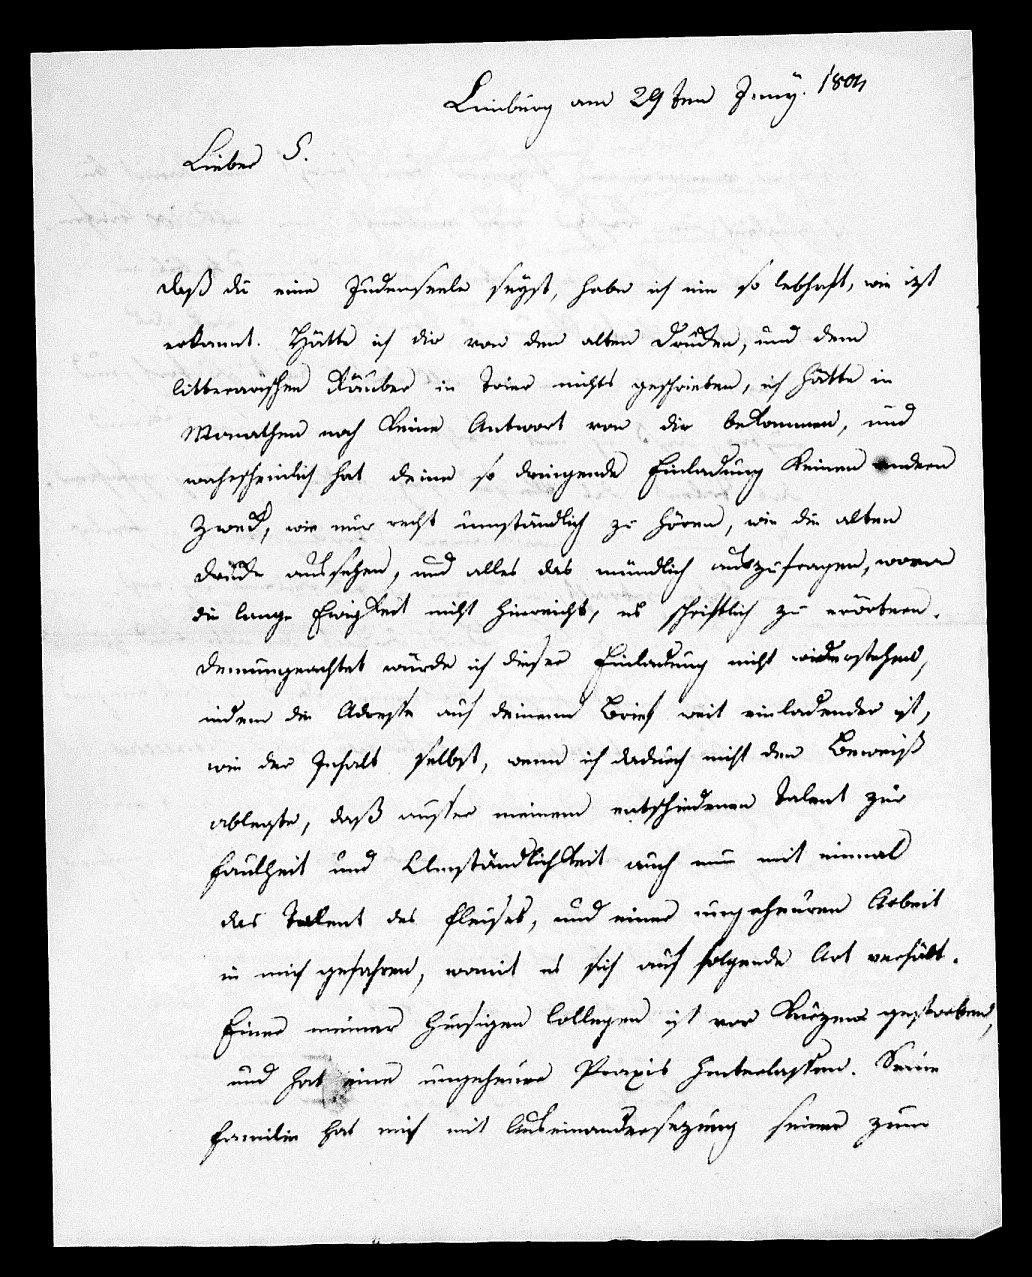 Limburg am 29ten Juny. 1804
Lieber S.
daß du eine Judenseele seyst, habe ich nie so lebhaft, wie izt
erkannt. Hätte ich dir von den alten Drucken, und dem
litterarischen Räuber in Trier nichts geschrieben, ich hätte in
Monathen noch keine Antwort von dir bekommen, und
wahrscheinlich hat deine so dringende Einladung keinen andern
Zweck, wie nur recht umständlich zu hören, wie die alten
Drucke aussehen, und alles das mündlich auszufragen, woran
die lange Ewigkeit nicht hinreicht, es schriftlich zu erörtern.
Demungeachtet würde ich dieser Einladung nicht widerstehen,
indem die Adresse auf deinem Brief weit einladender ist,
wie der Inhalt selbst, wenn ich dadurch nicht den Beweiß
ablegte, daß ausser meinem entschiedenen Talent zur
Faulheit und Umständlichkeit auch nun mit einmal
das Talent des Fleises, und einer ungeheuren Arbeit
in mich gefahren, womit es sich auf folgende Art verhält.
Einer meiner hiesigen Collegen ist vor Kurzem gestorben,
und hat eine ungeheure Praxis hinterlassen. Seine
Familie hat mich mit Auseinandersezung seiner zum